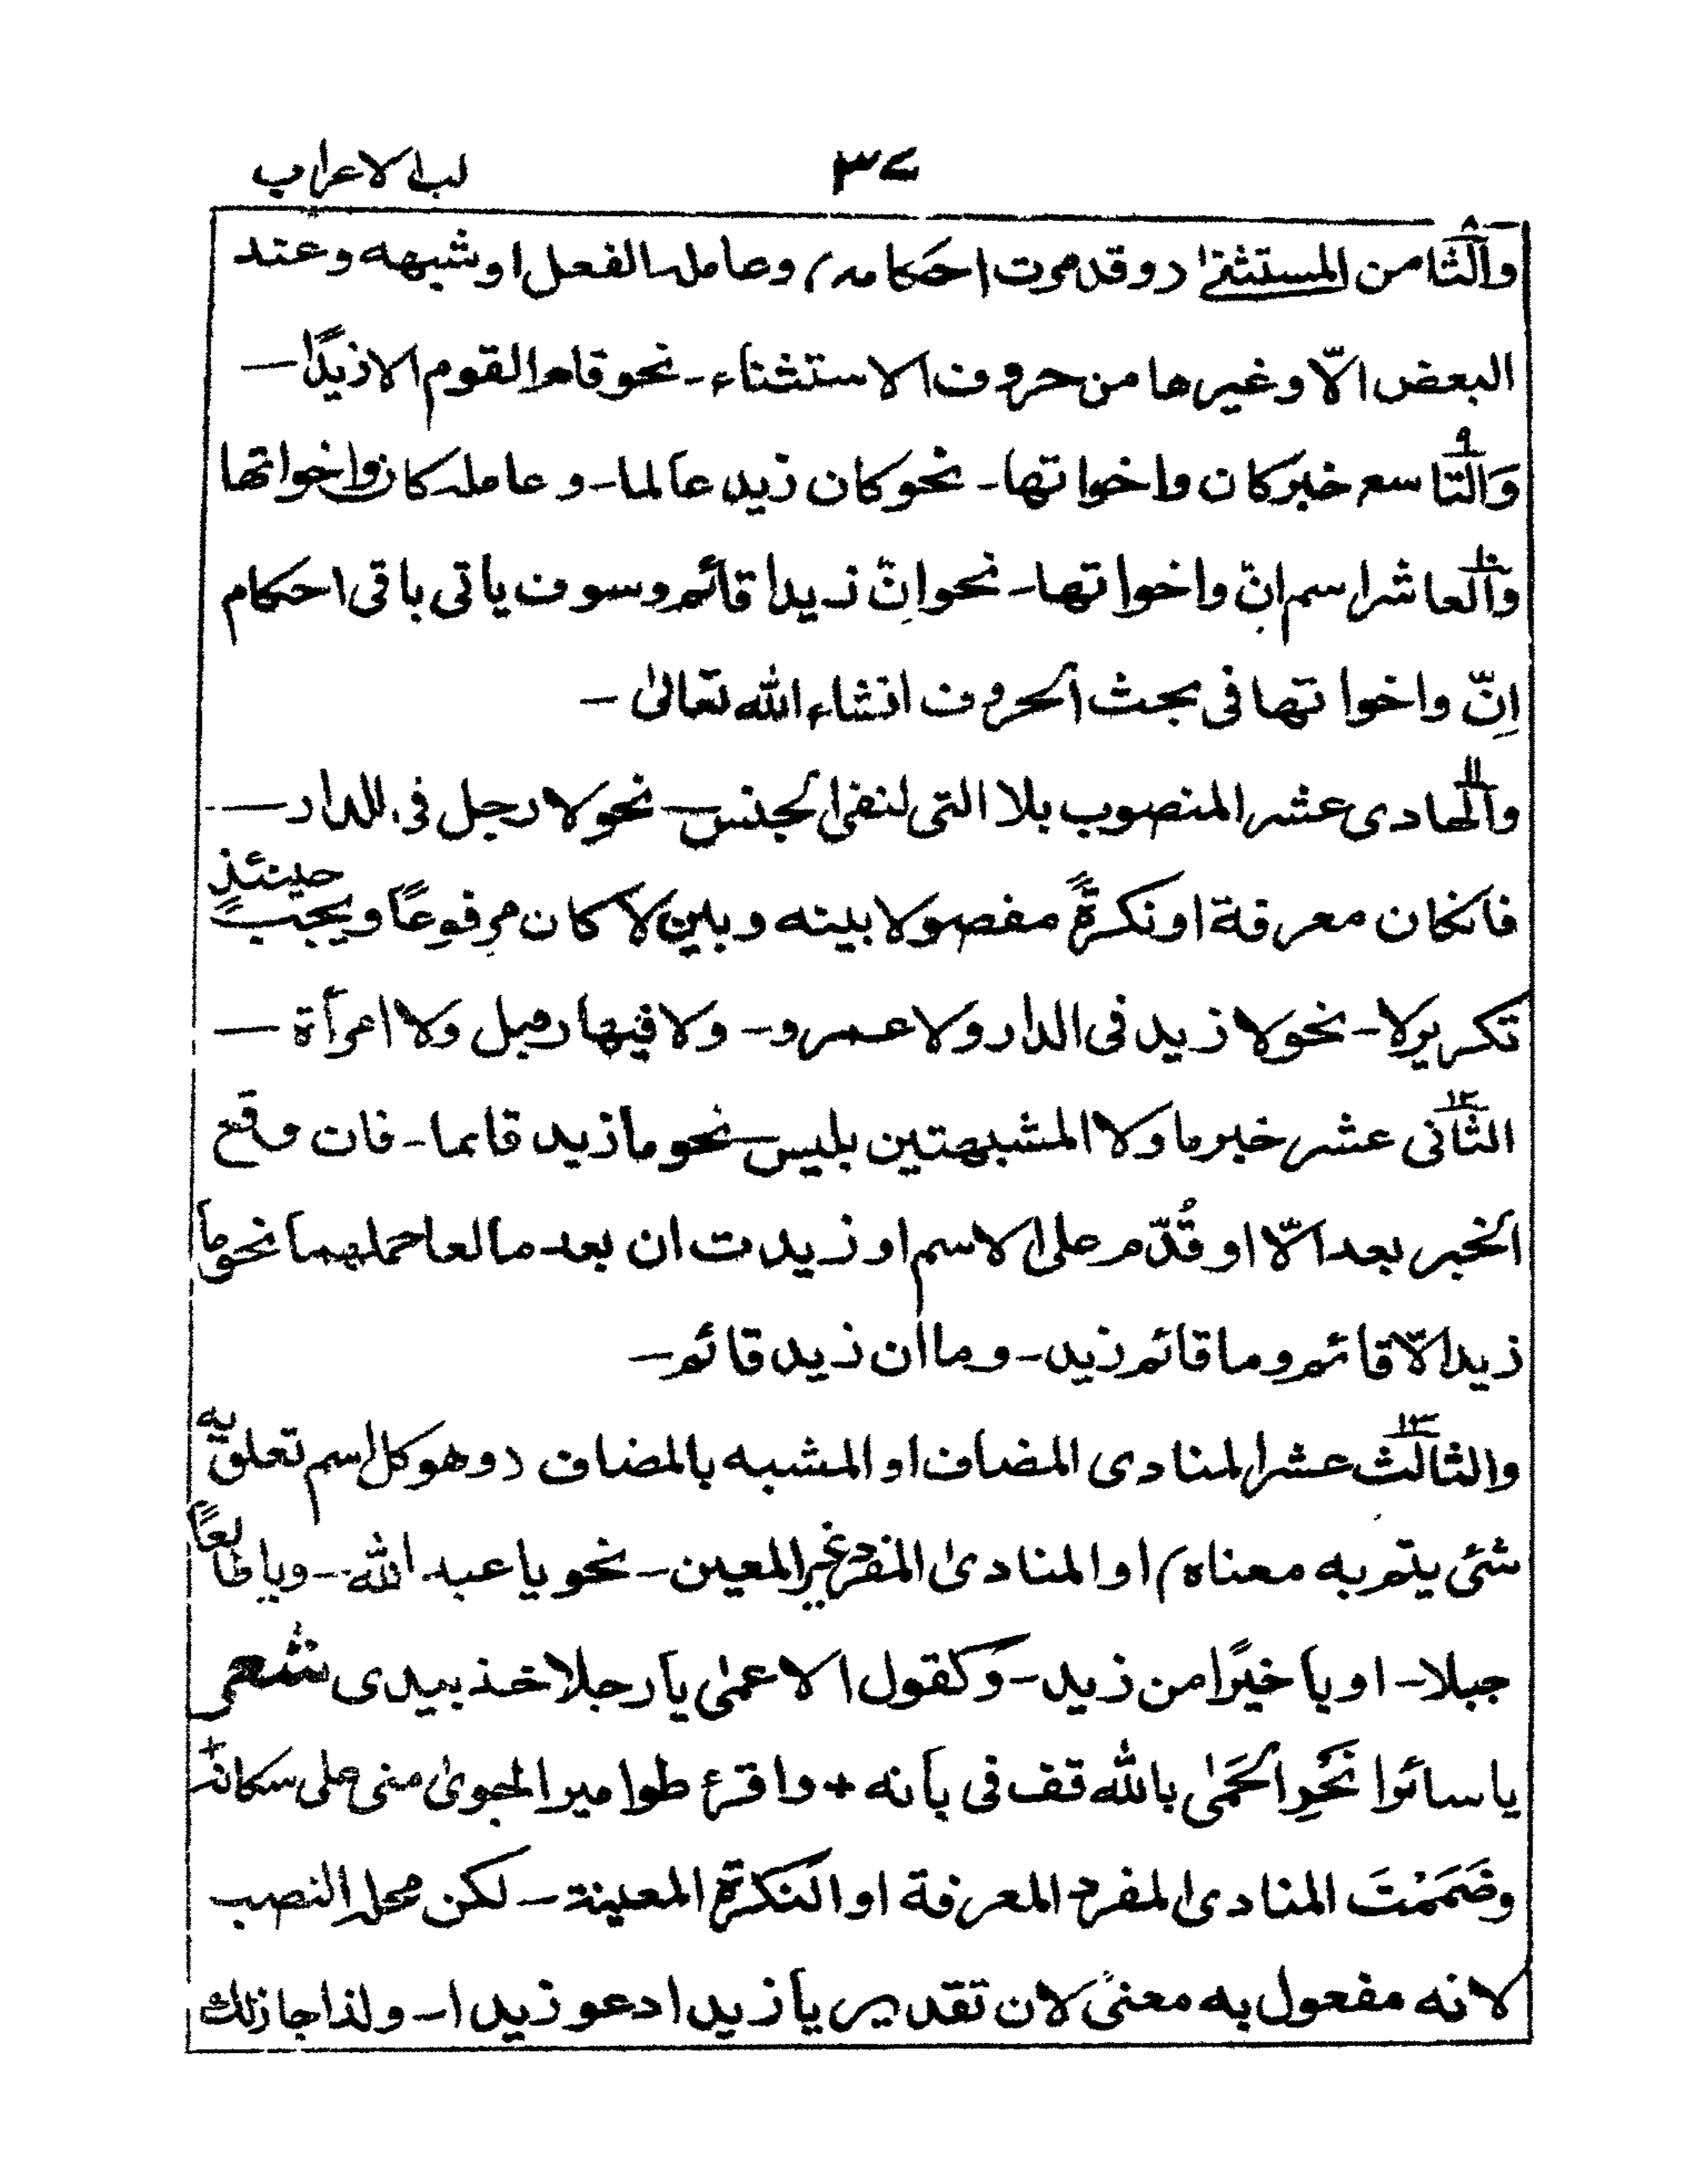 لب الاعراب ٣٧
والثامن المستثنىٰ (وقد مرت احكامه) وعامله الفعل او شبهه وعند
البعض الاّ وغيرها من حروف الاستثناء - نحو قام القوم الا زيدًا —
وَالتّاسع خبر كان واخواتها - نحو كان زيد عالما - و عامله كان واخواتها
والعاشر اسم انّ واخواتها - نحو اِنّ زيدا قائم وسوف ياتى باقى احكام
اِنّ واخواتها فى بحث الحروف انشاء الله تعالىٰ -
والحادى عشر المنصوب بلا التى لنفى الجنس — نحو لا رجل فى الدار —
فانكان معرفة او نكرةً مفصولا بينه وبين لا كان مرفوعاً ويجب حينئذٍ
تكرير لا - نحو لا زيد فى الدار ولا عمرو - ولا فيها رجل ولا امرأة —
الثانى عشر خبر ما ولا المشبهتين بليس — نحو ما زيد قائما - فان وقع
الخبر بعد الاّ او قُدّم على الاسم او زيدت ان بعد ما لغا عملهما نحو ما
زيد الاّ قائم وما قائم زيد - وما ان زيد قائم —
١٣ والثالث عشر المنادى المضاف او المشبه بالمضاف (وهو كل اسم تعلق به
شئى يتم به معناه) او المنادىٰ المفرد غير المعين - نحو يا عبد الله - ويا طالعاً
جبلا - او يا خيرًا من زيد - وكقول الاعمىٰ يا رجلا خذ بيدى شعر
يا سائرا نَحْوِ الحَمٰى بالله قف فى بانه + واقرئ طوامير الجوىٰ منى على سكانه +
وضَمَمْتَ المنادىٰ المفرد المعرفة او النكرة المعينة - لكن محله النصب
لانه مفعول به معنىً لان تقدير يا زيد ادعو زيدا - ولذا جاز لك